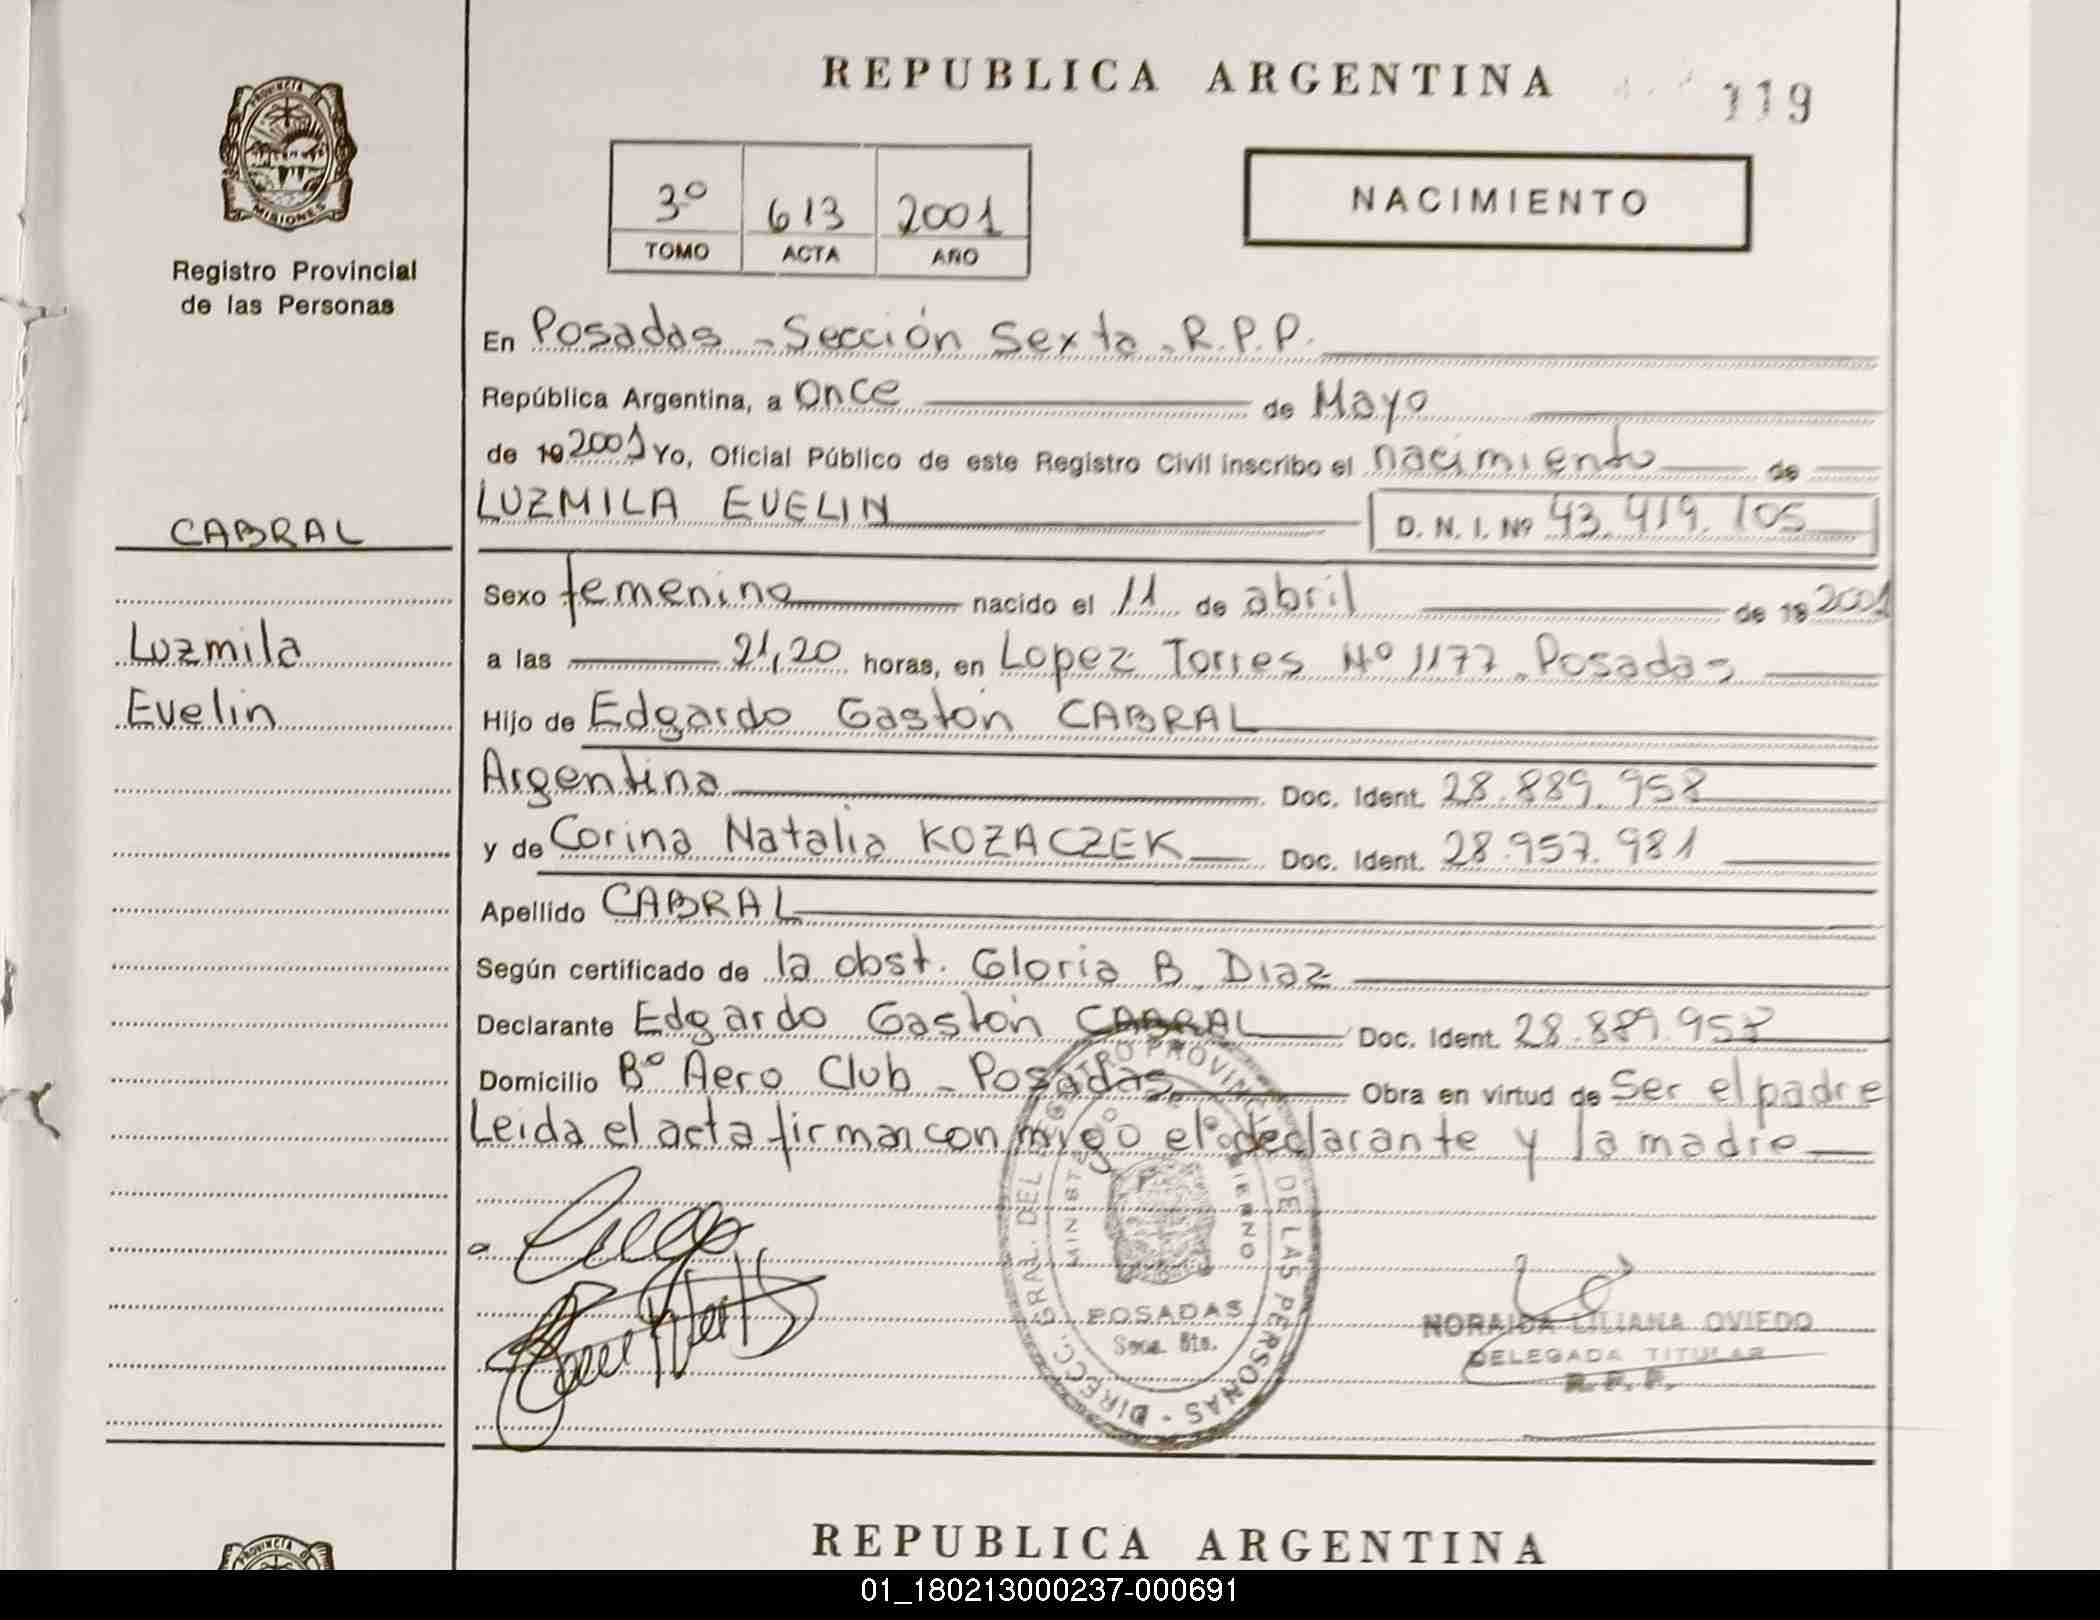 REPUBLICA ARGENTINA
119
PROVINCIA D
MISIONES
Registro Provincial
de las Personas
3º 613 2001
TOMO ACTA AÑO
NACIMIENTO
En Posadas - Sección Sexta - R.P.P.
República Argentina, a once de Mayo
de 19 2001 Yo, Oficial Público de este Registro Civil inscribo el nacimiento de
CABRAL
LUZMILA EVELIN D. N. I. Nº 43.419.105
Sexo femenino nacido el 11 de abril de 19 2001
Luzmila
a las 21,20 horas, en Lopez Torres Nº 1177 - Posadas
Evelin
Hijo de Edgardo Gastón CABRAL
Argentina Doc. Ident. 28.889.958
y de Corina Natalia KOZACZEK Doc. Ident. 28.957.981
Apellido CABRAL
Según certificado de la obst. Gloria B. Diaz
Declarante Edgardo Gastón CABRAL Doc. Ident. 28.889.958
Domicilio Bº Aero Club - Posadas Obra en virtud de Ser el padre
Leida el acta firman conmigo el declarante y la madre
DIRECC. GRAL. DEL REGISTRO PROVINCIAL DE LAS PERSONAS
POSADAS
Secc. 6ta.
NORAIDA LILIANA OVIEDO
DELEGADA TITULAR
R. P. P.
REPUBLICA ARGENTINA
PROVINCIA D
01_180213000237-000691